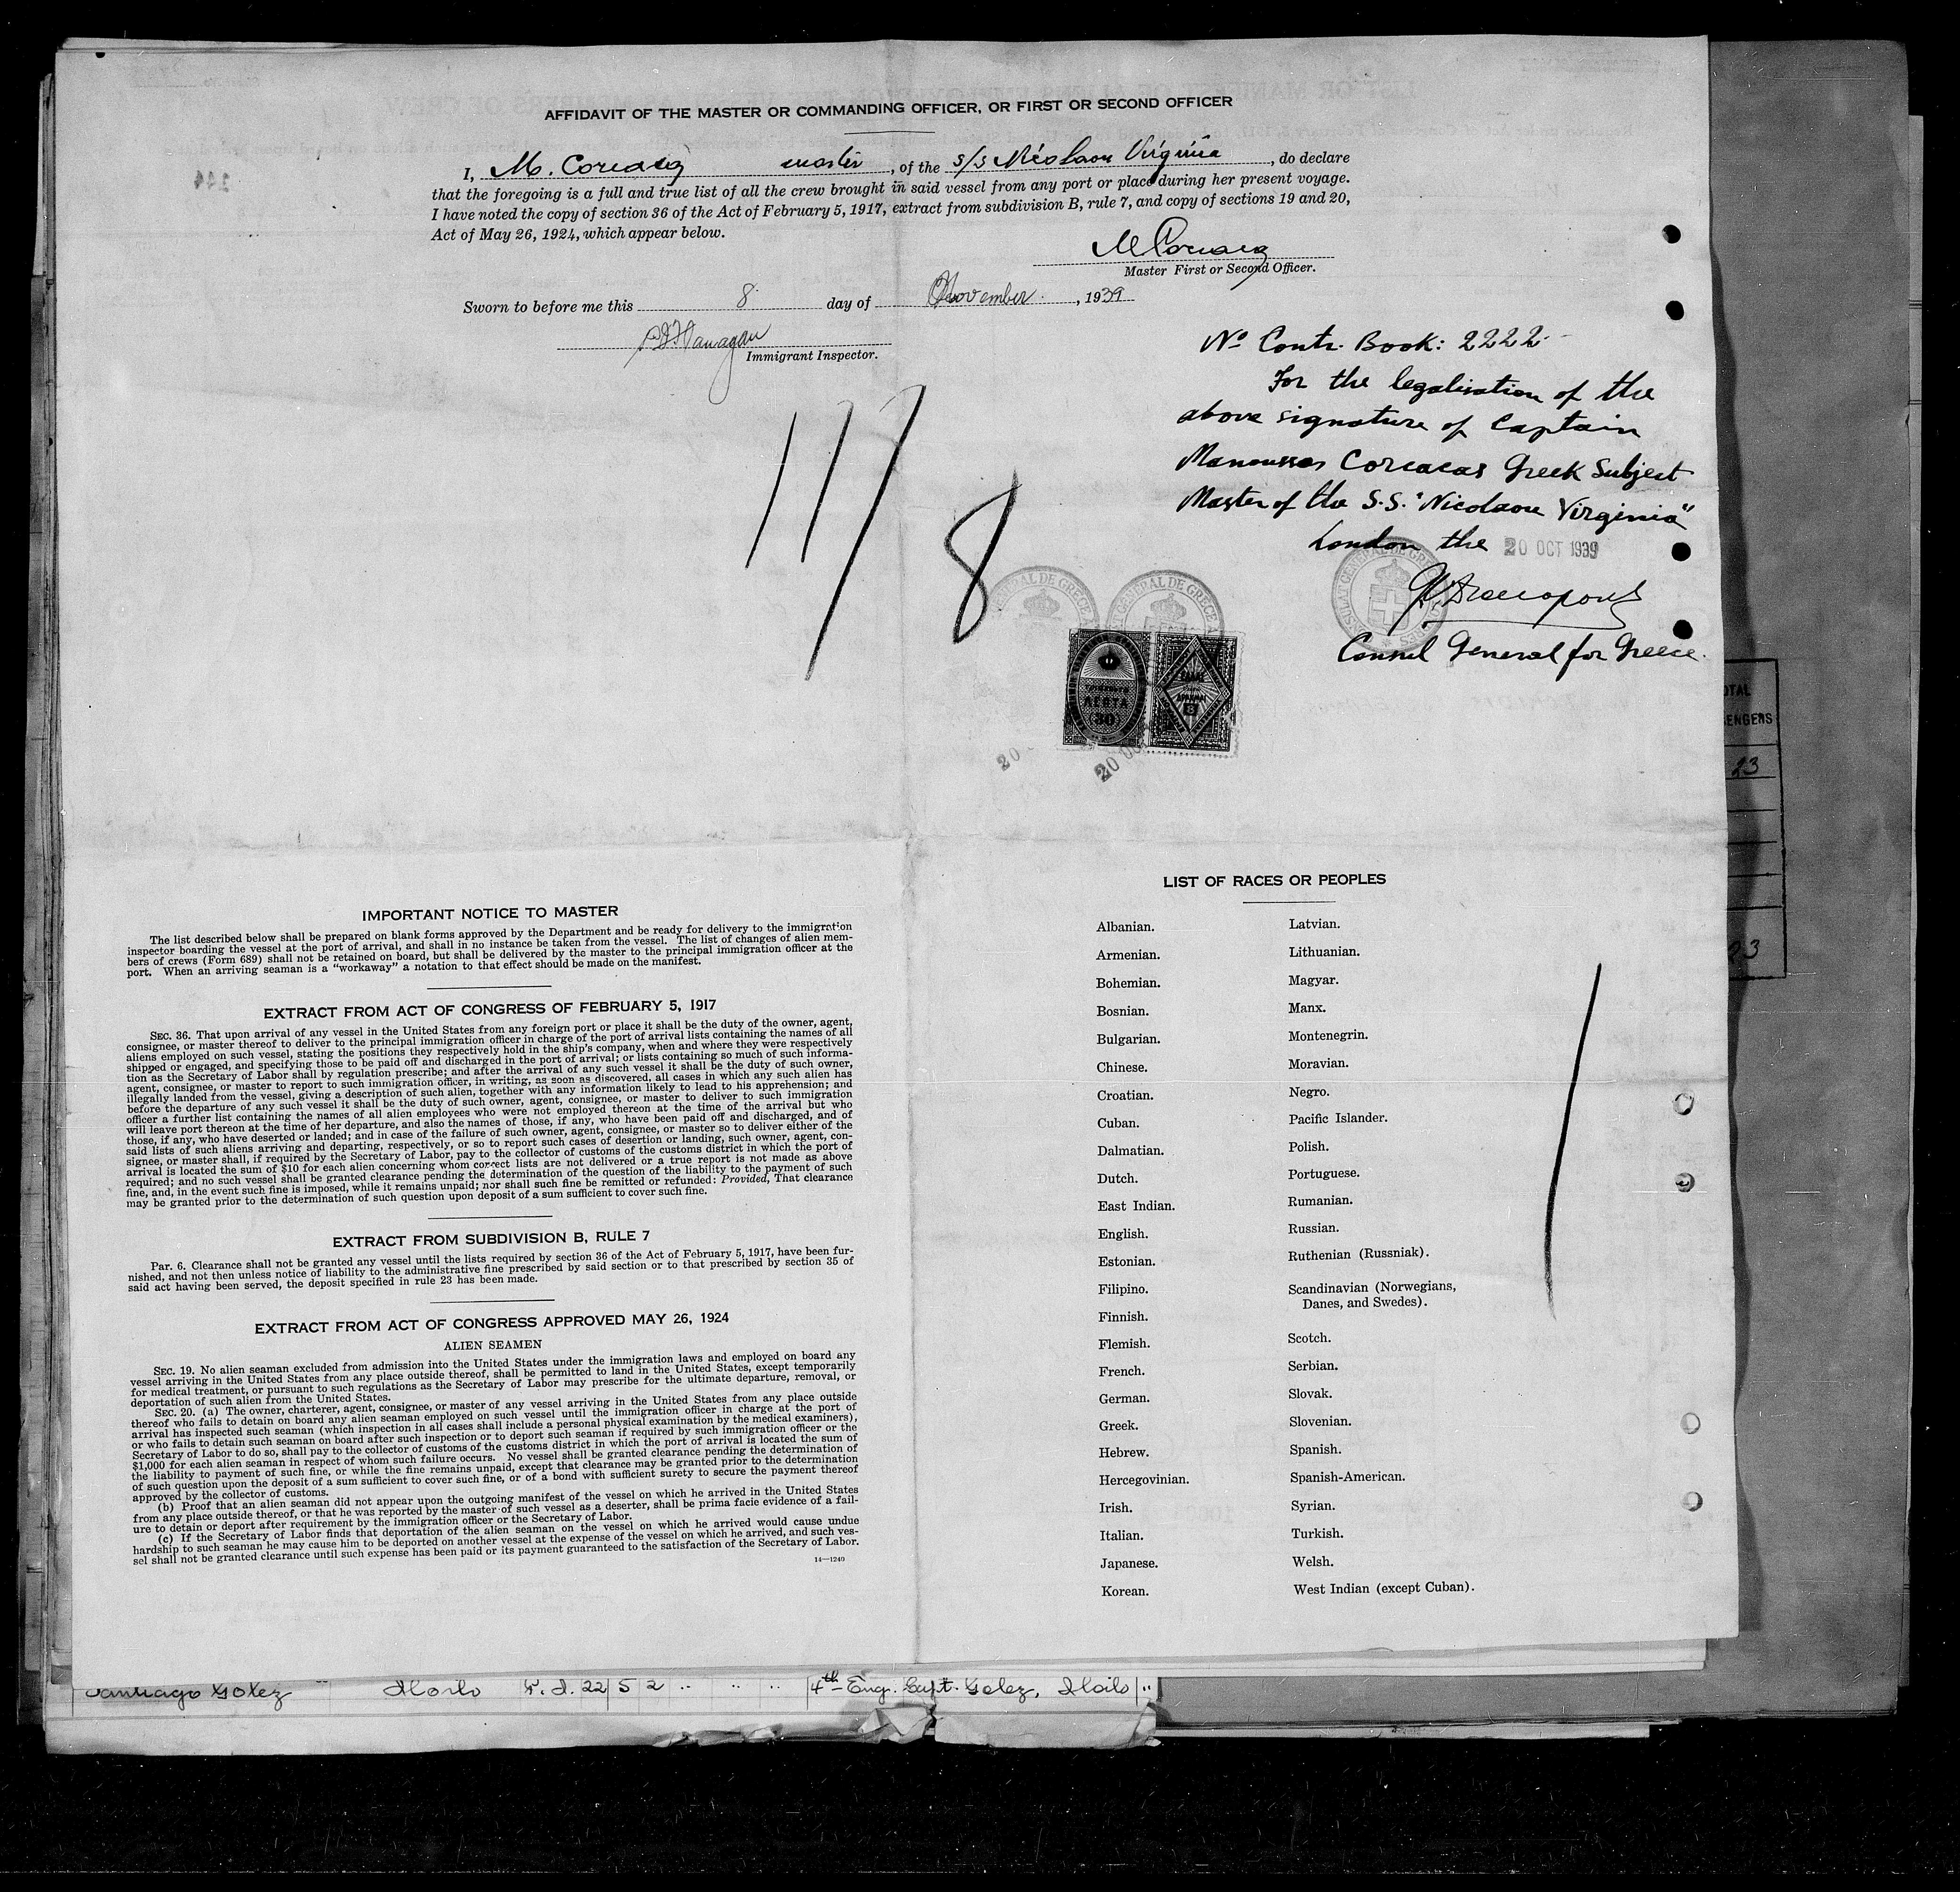 AFFIDAVIT OF THE MASTER OR COMMANDING OFFICER, OR FIRST OR SECOND OFFICER
I, M. Corcacas master, of the s/s Nicolaou Virginia, do declare
that the foregoing is a full and true list of all the crew brought in said vessel from any port or place during her present voyage.
I have noted the copy of section 36 of the Act of February 5, 1917, extract from subdivision B, rule 7, and copy of sections 19 and 20,
Act of May 26, 1924, which appear below.
M Corcacas
Master First or Second Officer.
Sworn to before me this 8 day of November, 1939
Immigrant Inspector.
No Contr. Book: 2222.
For the legalisation of the
above signature of Captain
Manoussos Corcacas Greek Subject
Master of the S.S. "Nicolaou Virginia"
London the 20 OCT 1939
Consul General for Greece.
117
8
ΛΕΠΤΑ
(30)
20
20 OCT
OTAL
ENGERS
23
23
IMPORTANT NOTICE TO MASTER
The list described below shall be prepared on blank forms approved by the Department and be ready for delivery to the immigration
inspector boarding the vessel at the port of arrival, and shall in no instance be taken from the vessel. The list of changes of alien mem-
bers of crews (Form 689) shall not be retained on board, but shall be delivered by the master to the principal immigration officer at the
port. When an arriving seaman is a "workaway" a notation to that effect should be made on the manifest.
EXTRACT FROM ACT OF CONGRESS OF FEBRUARY 5, 1917
SEC. 36. That upon arrival of any vessel in the United States from any foreign port or place it shall be the duty of the owner, agent,
consignee, or master thereof to deliver to the principal immigration officer in charge of the port of arrival lists containing the names of all
aliens employed on such vessel, stating the positions they respectively hold in the ship's company, when and where they were respectively
shipped or engaged, and specifying those to be paid off and discharged in the port of arrival; or lists containing so much of such informa-
tion as the Secretary of Labor shall by regulation prescribe; and after the arrival of any such vessel it shall be the duty of such owner,
agent, consignee, or master to report to such immigration officer, in writing, as soon as discovered, all cases in which any such alien has
illegally landed from the vessel, giving a description of such alien, together with any information likely to lead to his apprehension; and
before the departure of any such vessel it shall be the duty of such owner, agent, consignee, or master to deliver to such immigration
officer a further list containing the names of all alien employees who were not employed thereon at the time of the arrival but who
will leave port thereon at the time of her departure, and also the names of those, if any, who have been paid off and discharged, and of
those, if any, who have deserted or landed; and in case of the failure of such owner, agent, consignee, or master so to deliver either of the
said lists of such aliens arriving and departing, respectively, or so to report such cases of desertion or landing, such owner, agent, con-
signee, or master shall, if required by the Secretary of Labor, pay to the collector of customs of the customs district in which the port of
arrival is located the sum of $10 for each alien concerning whom correct lists are not delivered or a true report is not made as above
required; and no such vessel shall be granted clearance pending the determination of the question of the liability to the payment of such
fine, and, in the event such fine is imposed, while it remains unpaid; nor shall such fine be remitted or refunded: Provided, That clearance
may be granted prior to the determination of such question upon deposit of a sum sufficient to cover such fine.
EXTRACT FROM SUBDIVISION B, RULE 7
Par. 6. Clearance shall not be granted any vessel until the lists required by section 36 of the Act of February 5, 1917, have been fur-
nished, and not then unless notice of liability to the administrative fine prescribed by said section or to that prescribed by section 35 of
said act having been served, the deposit specified in rule 23 has been made.
EXTRACT FROM ACT OF CONGRESS APPROVED MAY 26, 1924
ALIEN SEAMEN
SEC. 19. No alien seaman excluded from admission into the United States under the immigration laws and employed on board any
vessel arriving in the United States from any place outside thereof, shall be permitted to land in the United States, except temporarily
for medical treatment, or pursuant to such regulations as the Secretary of Labor may prescribe for the ultimate departure, removal, or
deportation of such alien from the United States.
SEC. 20. (a) The owner, charterer, agent, consignee, or master of any vessel arriving in the United States from any place outside
thereof who fails to detain on board any alien seaman employed on such vessel until the immigration officer in charge at the port of
arrival has inspected such seaman (which inspection in all cases shall include a personal physical examination by the medical examiners),
or who fails to detain such seaman on board after such inspection or to deport such seaman if required by such immigration officer or the
Secretary of Labor to do so, shall pay to the collector of customs of the customs district in which the port of arrival is located the sum of
$1,000 for each alien seaman in respect of whom such failure occurs. No vessel shall be granted clearance pending the determination of
the liability to payment of such fine, or while the fine remains unpaid, except that clearance may be granted prior to the determination
of such question upon the deposit of a sum sufficient to cover such fine, or of a bond with sufficient surety to secure the payment thereof
approved by the collector of customs.
(b) Proof that an alien seaman did not appear upon the outgoing manifest of the vessel on which he arrived in the United States
from any place outside thereof, or that he was reported by the master of such vessel as a deserter, shall be prima facie evidence of a fail-
ure to detain or deport after requirement by the immigration officer or the Secretary of Labor.
(c) If the Secretary of Labor finds that deportation of the alien seaman on the vessel on which he arrived would cause undue
hardship to such seaman he may cause him to be deported on another vessel at the expense of the vessel on which he arrived, and such ves-
sel shall not be granted clearance until such expense has been paid or its payment guaranteed to the satisfaction of the Secretary of Labor.
14—1240
LIST OF RACES OR PEOPLES
Albanian.
Armenian.
Bohemian.
Bosnian.
Bulgarian.
Chinese.
Croatian.
Cuban.
Dalmatian.
Dutch.
East Indian.
English.
Estonian.
Filipino.
Finnish.
Flemish.
French.
German.
Greek.
Hebrew.
Hercegovinian.
Irish.
Italian.
Japanese.
Korean.
Latvian.
Lithuanian.
Magyar.
Manx.
Montenegrin.
Moravian.
Negro.
Pacific Islander.
Polish.
Portuguese.
Rumanian.
Russian.
Ruthenian (Russniak).
Scandinavian (Norwegians,
Danes, and Swedes).
Scotch.
Serbian.
Slovak.
Slovenian.
Spanish.
Spanish-American.
Syrian.
Turkish.
Welsh.
West Indian (except Cuban).
Santiago Golez " Iloilo P.I. 22 5 2 " " " 4th Eng. Capt. Golez, Iloilo "